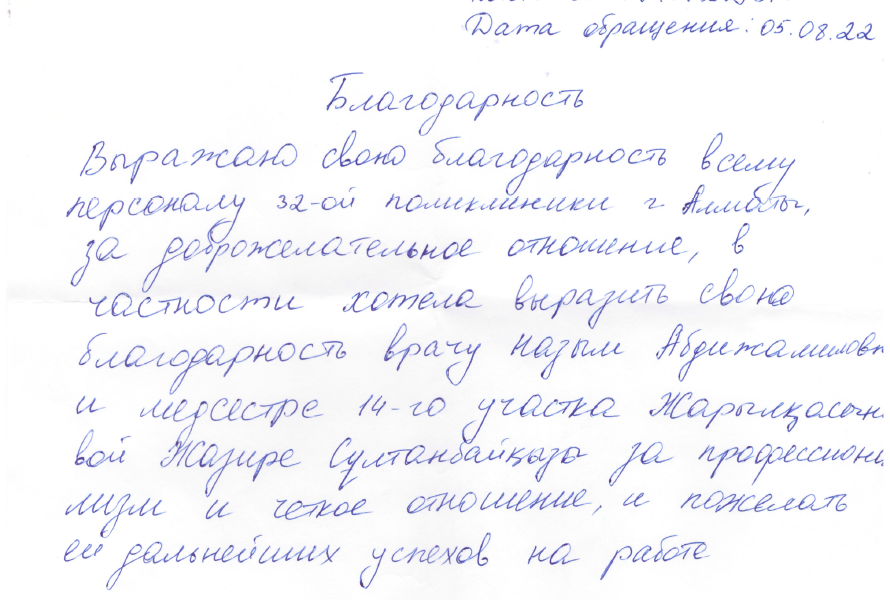 Дата обращения: 05.08.22
Благодарность
Выражаю свою благодарность всему
персоналу 32-ой поликлиники г Алматы,
за доброжелательное отношение, в
частности хотела выразить свою
благодарность врачу Назым Абдижамиловн
и медсестре 14-го участка Жарылқасын
вой Жазире Сұлтанбайқызы за профессиона
лизм и четкое отношение, и пожелать
ей дальнейших успехов на работе